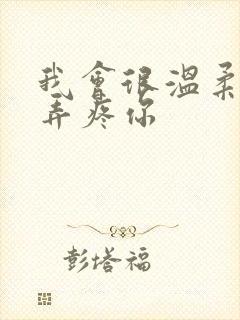 我會很溫柔
弄疼你
彭塔福